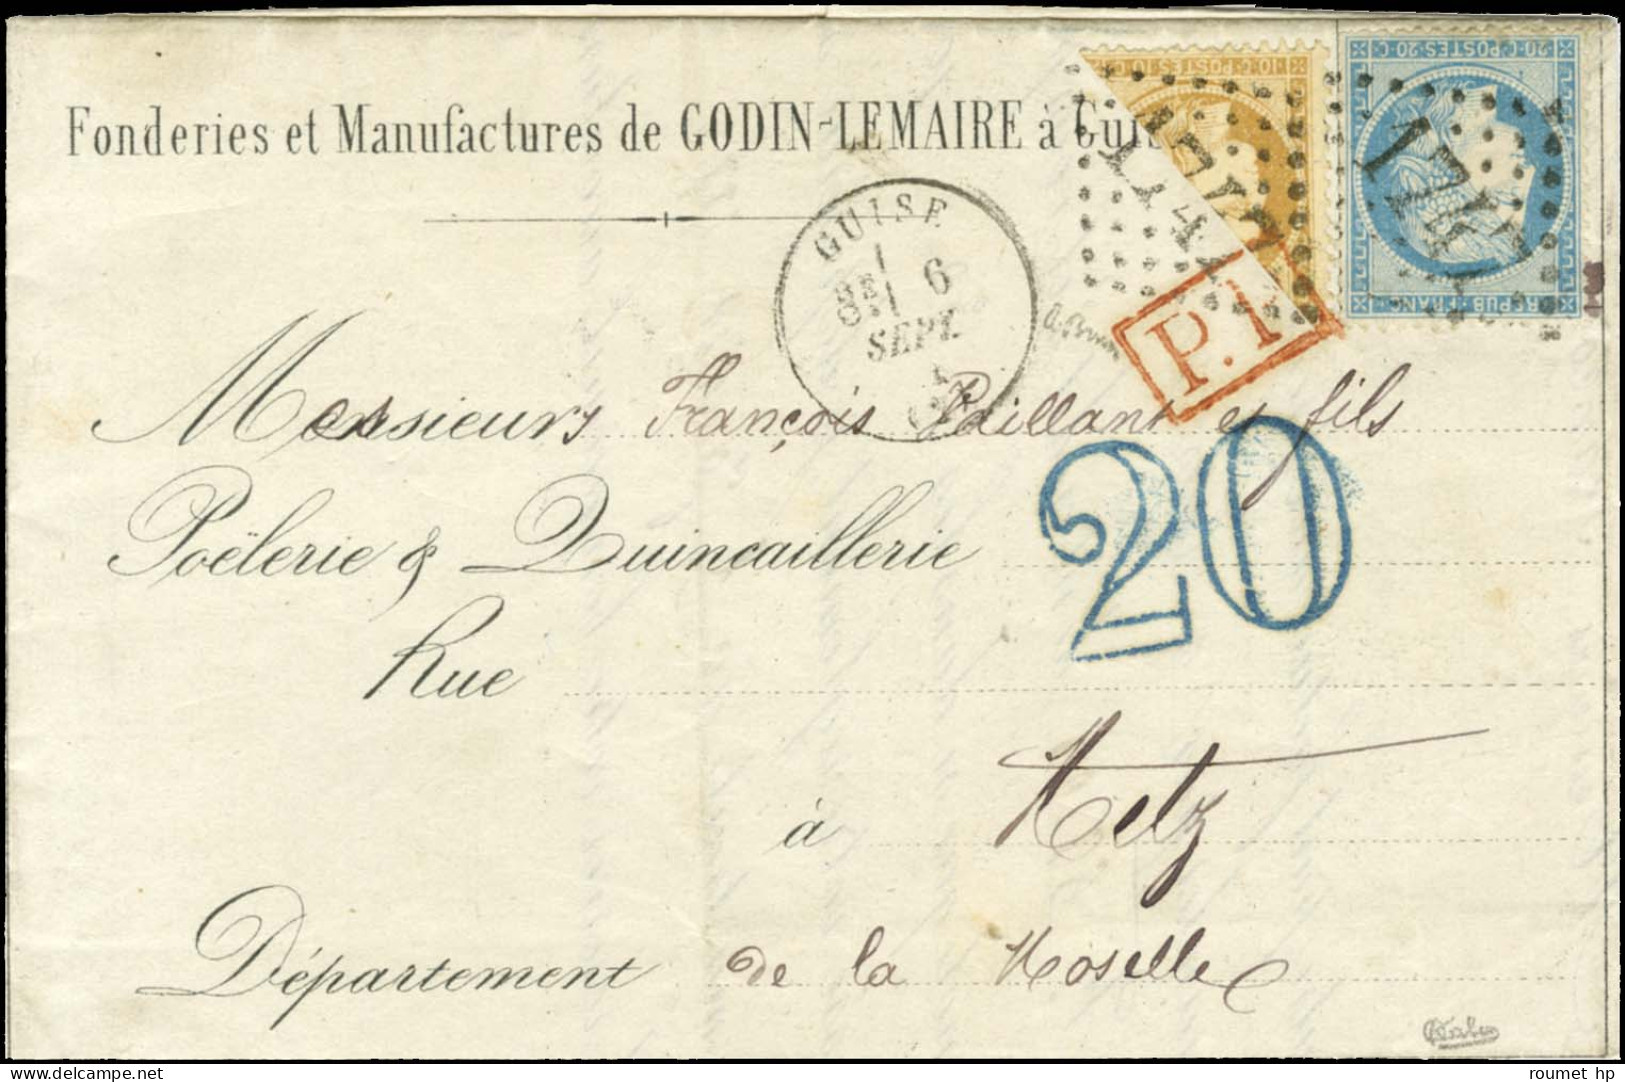 10 C · POSTES · 10 C
20 · C · POSTES · 20 · C
REPUB · FRANC
Fonderies et Manufactures de GODIN-LEMAIRE à Guis
GUISE
6
SEPT.
1747
1747
P.P.
Messieurs François Paillant et fils
20
Poëlerie & Quincaillerie
Rue
à Metz
Département de la Moselle
roumet hp